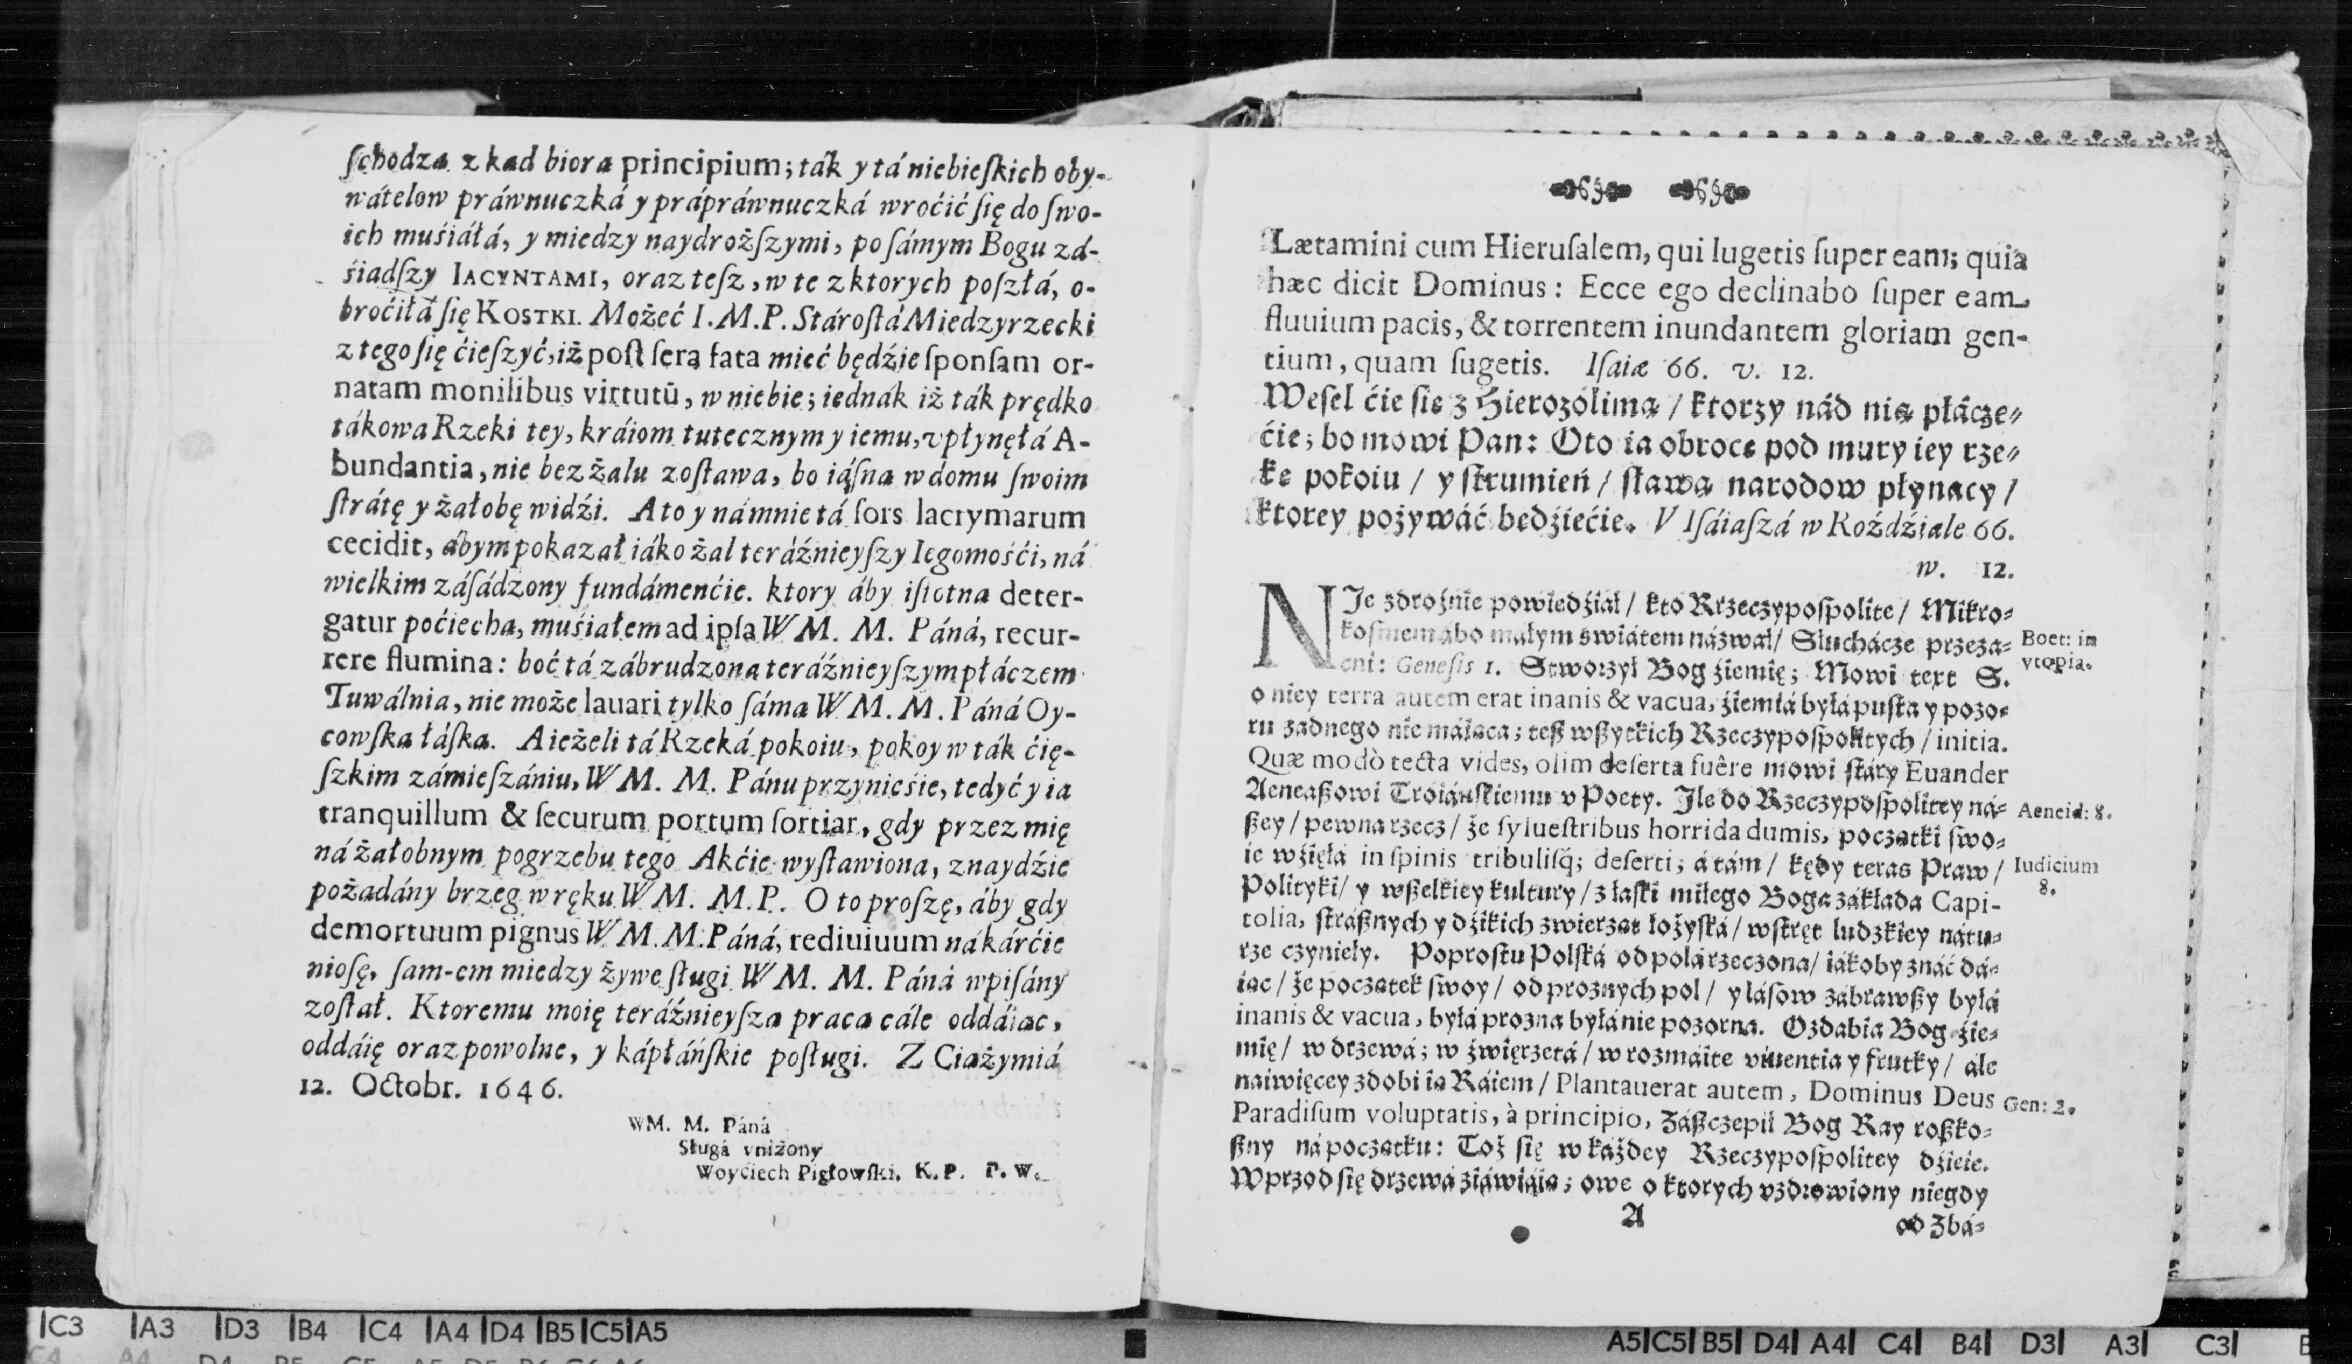 ſchodza z kad biora principium; ták y tá niebieſkich oby-
wátelow práwnuczká y prápráwnuczká wroćić ſię do ſwo-
ich muśiáłá, y miedzy naydrożſzymi, po ſámym Bogu zá-
śiadſzy IACYNTAMI, oraz teſz, w te z ktorych poſzłá, o-
broćiłá ſię KOSTKI. Możeć I. M. P. Stároſtá Miedzyrzecki
z tego ſię ćieſzyć, iż poſt ſera fata mieć będźie ſponſam or-
natam monilibus virtutū, w niebie; iednák iż ták prędko
tákowa Rzeki tey, kráiom tutecznym y iemu, vpłynęłá A-
bundantia, nie bez żalu zoſtawa, bo iáſna w domu ſwoim
ſtrátę y żałobę widźi. A to y ná mnie tá ſors lacrymarum
cecidit, ábym pokazał iáko żal teráźnieyſzy Iegomośći, ná
wielkim záſádzony fundámenćie. ktory áby iſtotna deter-
gatur poćiecha, muśiałem ad ipſa W M. M. Páná, recur-
rere flumina: boć tá zábrudzona teráźnieyſzym płáczem
Tuwálnia, nie może lauari tylko ſáma W M. M. Páná Oy-
cowſka łáſka. A ieżeli tá Rzeká pokoiu, pokoy w ták ćię-
ſzkim zámieſzániu, W M. M. Pánu przynieśie, tedyć y ia
tranquillum & ſecurum portum ſortiar, gdy przez mię
ná żałobnym pogrzebu tego Akćie wyſtawiona, znaydźie
pożadány brzeg w ręku W M. M. P. O to proſzę, áby gdy
demortuum pignus W M. M. Páná, rediuiuum ná kárćie
nioſę, ſam-em miedzy żywe ſługi W M. M. Páná wpiſány
zoſtał. Ktoremu moię teráźnieyſza praca cále oddáiac,
oddáię oraz powolne, y kápłáńſkie poſługi. Z Ciażymiá
12. Octobr. 1646.
WM. M. Páná
Sługá vniżony
Woyćiech Pigłowſki. K. P. P. W.
Lætamini cum Hieruſalem, qui lugetis ſuper eam; quia
hæc dicit Dominus: Ecce ego declinabo ſuper eam
fluuium pacis, & torrentem inundantem gloriam gen-
tium, quam ſugetis. Iſaiæ 66. v. 12.
Weſel ćie ſie z Hierozolima / ktorzy nád nia płácze-
ćie; bo mowi Pan: Oto ia obroce pod mury iey rze-
ke pokoiu / y ſtrumień / ſława narodow płynacy /
ktorey pożywáć bedźiećie. V Iſáiaſzá w Roźdźiale 66.
w. 12.
NJe zdrożnie powiedźiał / kto Rzeczypoſpolite / Mikro-
koſmem ábo małym świátem názwał / Słuchácze przeza-
cni: Geneſis 1. Stworzył Bog źiemię; Mowi text S.
o niey terra autem erat inanis & vacua, źiemiá byłá puſta y pozo-
ru żadnego nie máiaca; teß wßytkich Rzeczypoſpolitych / initia.
Quæ modò tecta vides, olim deſerta fuêre mowi ſtáry Euander
Aeneaßowi Troiáńſkiemu v Poety. Jle do Rzeczypoſpolitey ná-
ßey / pewna rzecz / że ſylueſtribus horrida dumis, poczatki ſwo-
ie wźięłá in ſpinis tribuliſq; deſerti; á tám / kędy teras Praw /
Polityki / y wßelkiey kultury / z łaſki miłego Boga zákłada Capi-
tolia, ſtráßnych y dźikich zwierzat łożyſká / wſtręt ludzkiey nátu-
rze czynieły. Poproſtu Polſká od polá rzeczona / iákoby znáć dá-
iac / że poczatek ſwoy / od proznych pol / y láſow zábrawßy byłá
inanis & vacua, byłá prozna byłá nie pozorna. Ozdabia Bog źie-
mię / w drzewá; w źwięrzetá / w rozmáite viuentia y frutky / ále
naiwięcey zdobi ia Ráiem / Plantauerat autem, Dominus Deus
Paradiſum voluptatis, à principio, Záßczepił Bog Ray roßko-
ßny ná poczatku: Toż ſię w káżdey Rzeczypoſpolitey dźieie.
Wprzod ſię drzewá ziáwiáia; owe o ktorych vzdrowiony niegdy
A
od Zbá-
Boet: in
vtopia.
Aeneid: 8.
Iudicium
8.
Gen: 2.
C3 A3 D3 B4 C4 A4 D4 B5 C5 A5
A5 C5 B5 D4 A4 C4 B4 D3 A3 C3